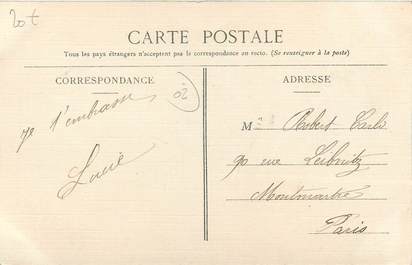 20 t
CARTE POSTALE
Tous les pays étrangers n'acceptent pas la correspondance au recto. (Se renseigner à la poste)
CORRESPONDANCE
ADRESSE
02
Je t'embrasse
M Robert Carli
90 rue Leibnitz
Montmartre
Paris